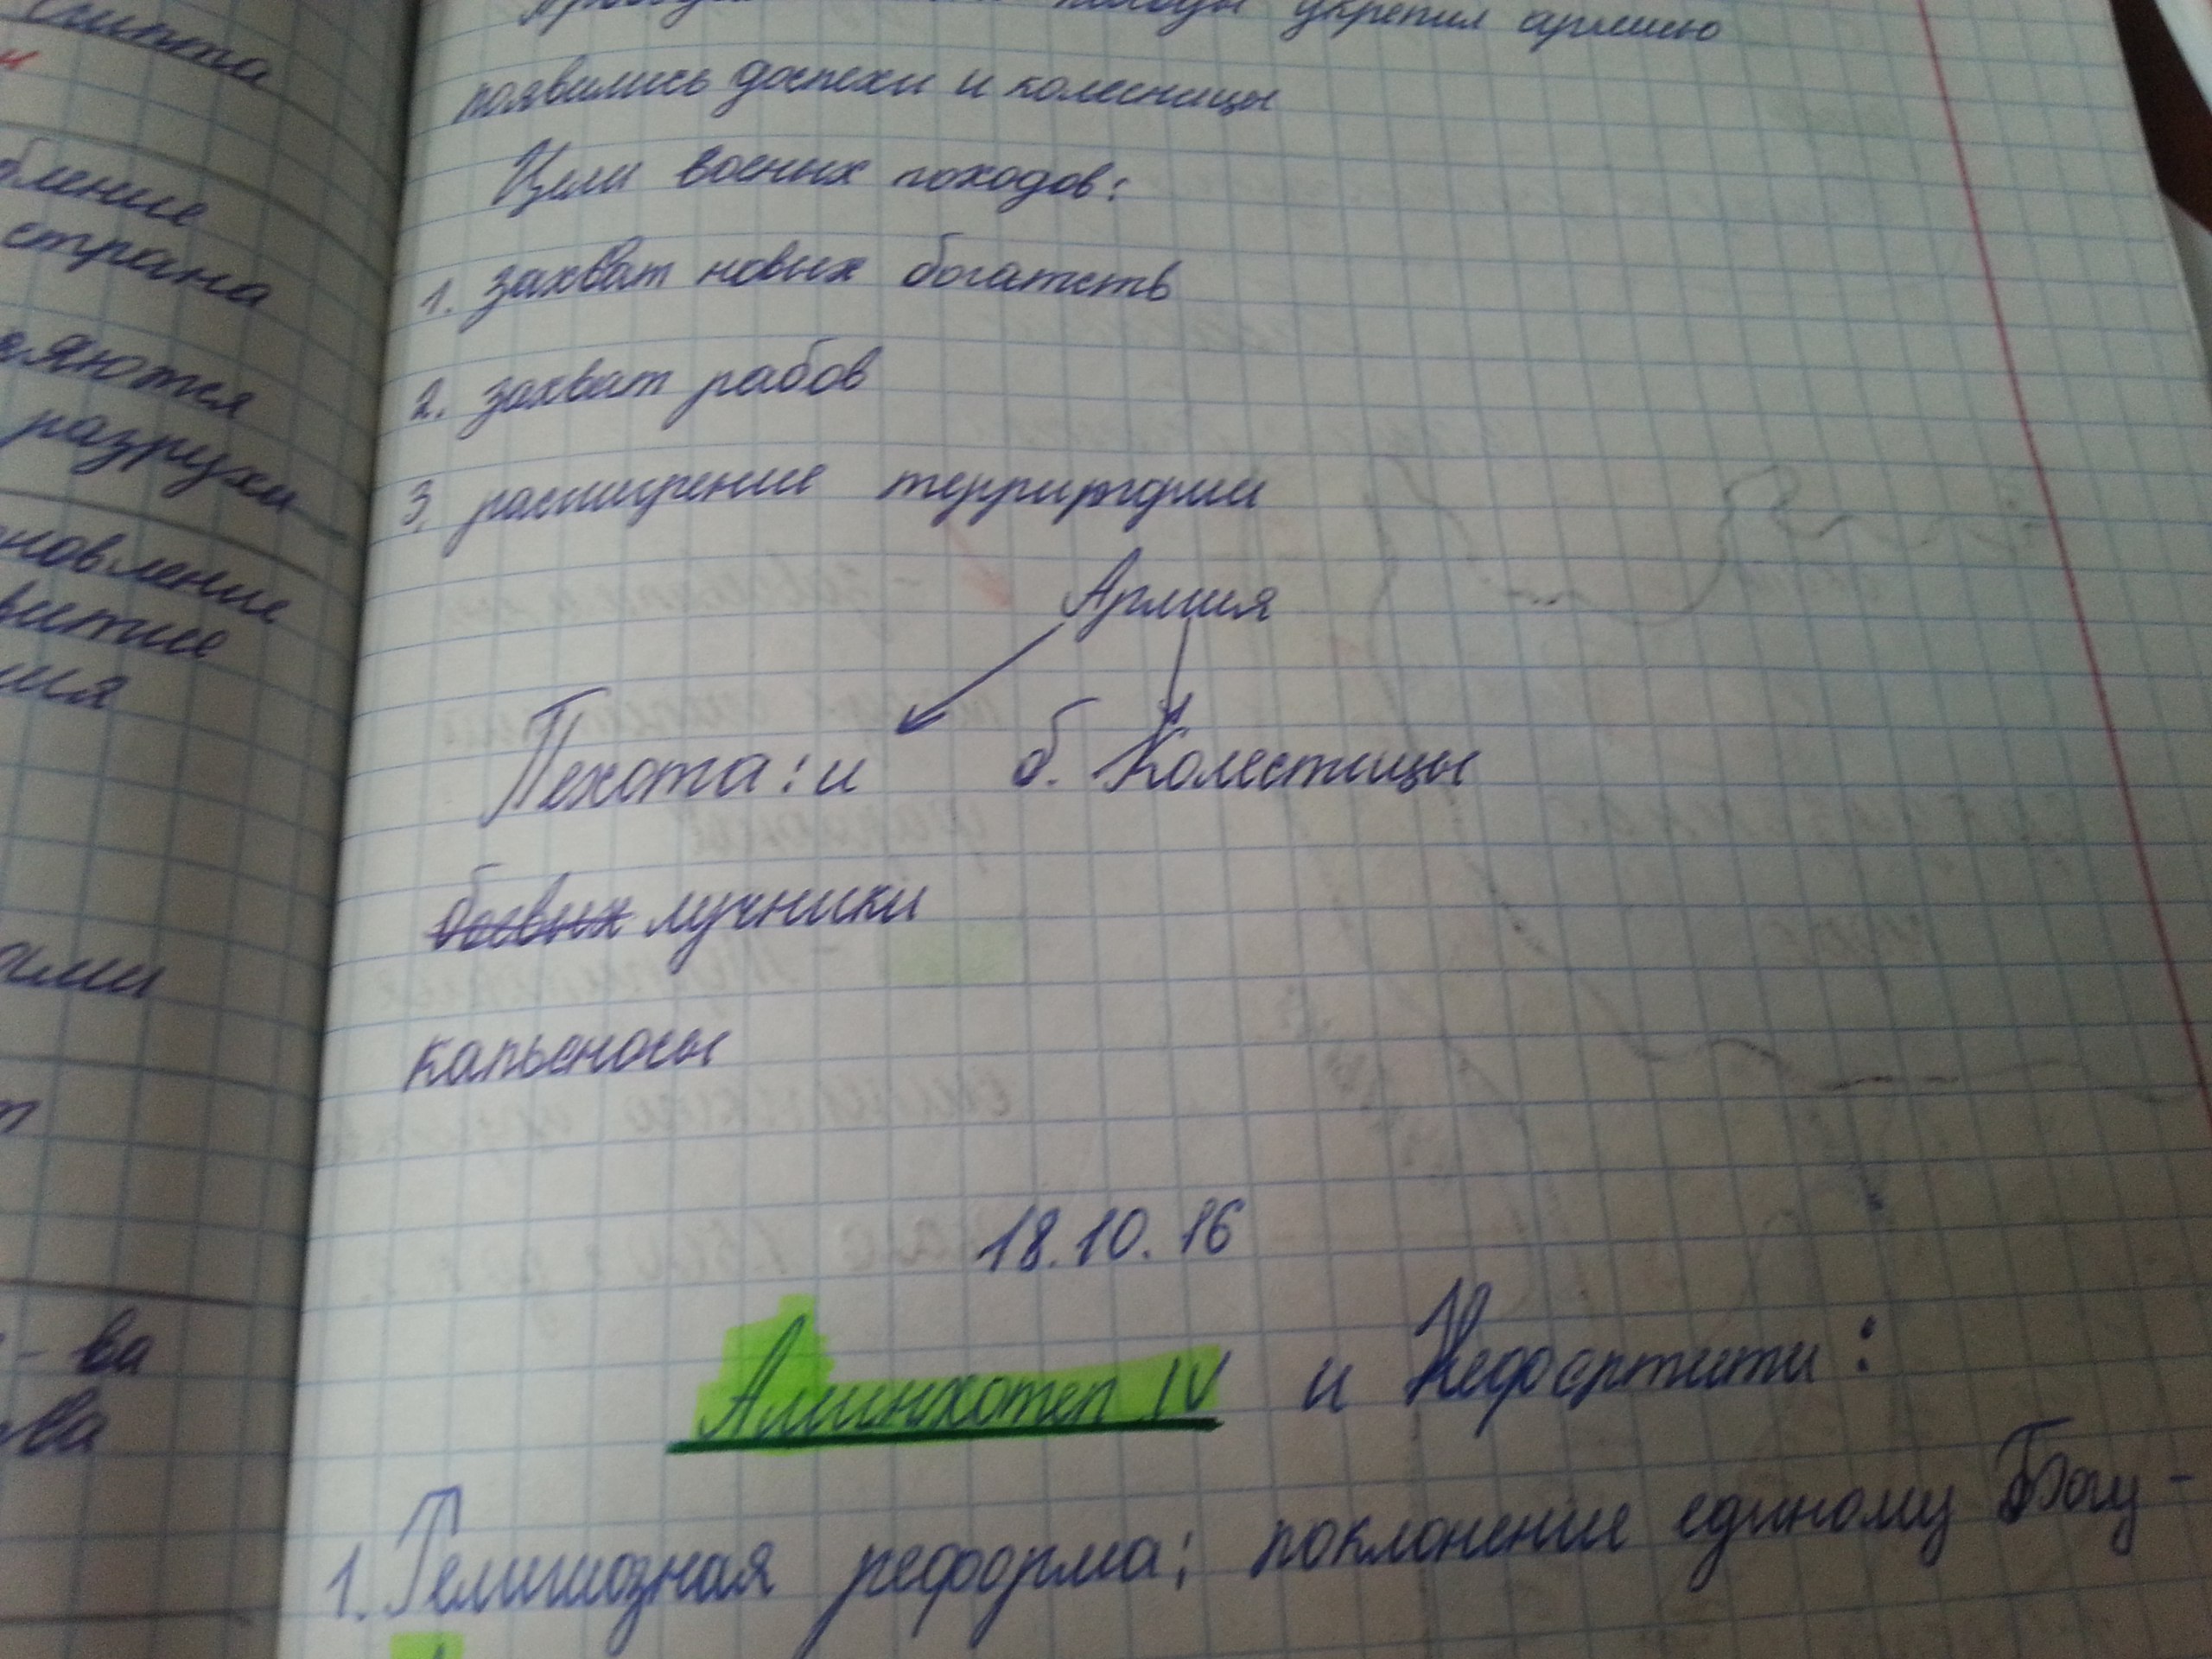 египта
и
бление
страна
вляются
разрухи
новление
витие
ния
ами
т
- ва
ва
походы укрепил армию
появились доспехи и колесницы
Цели военых походов:
1. захват новых богатств
2. захват рабов
3. расширение территории
Армия
Пехота: и б. Колестицы
боевых лучники
капьеносы
18.10.16
Аминхотеп IV и Нефертити:
1. Религиозная реформа; поклонение единому Богу -